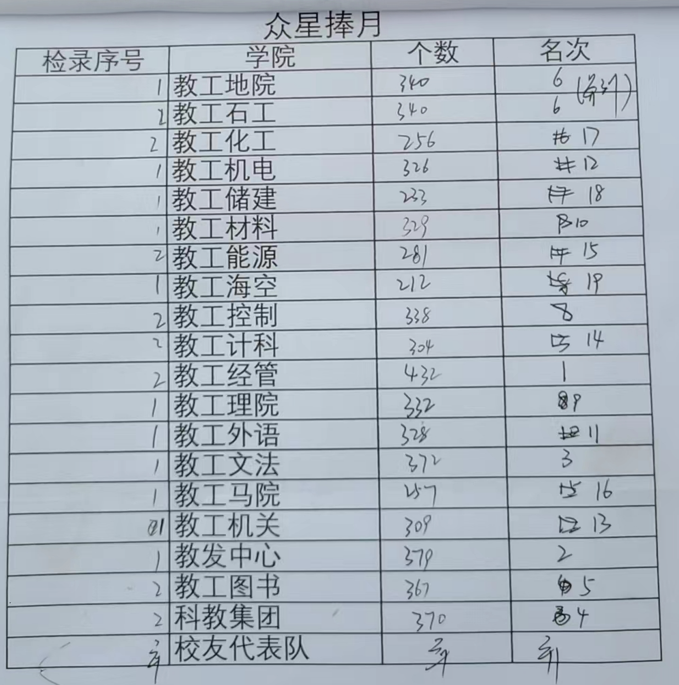 众星捧月
检录序号 学院 个数 名次
1 教工地院 340 6
2 教工石工 340 6
2 教工化工 256 17
1 教工机电 326 12
1 教工储建 233 18
1 教工材料 329 10
2 教工能源 281 15
1 教工海空 212 19
2 教工控制 338 8
2 教工计科 304 14
2 教工经管 432 1
1 教工理院 332 9
1 教工外语 328 11
1 教工文法 372 3
1 教工马院 257 16
1 教工机关 309 13
1 教发中心 379 2
2 教工图书 367 5
2 科教集团 370 4
弃 校友代表队 弃 弃